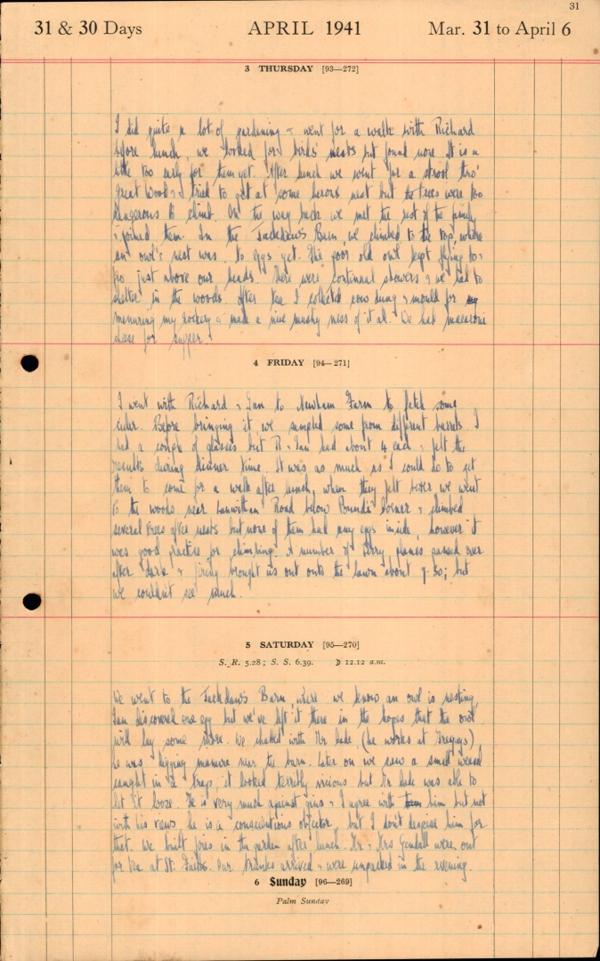 31
31 & 30 Days APRIL 1941 Mar. 31 to April 6
3 THURSDAY [93—272]
I did quite a lot of gardening & went for a walk with Richard
before lunch, we looked for birds' nests but found none. It is a
little too early for them yet. After lunch we went for a stroll thro'
Great Wood & tried to get at some herons nest but the trees were too
dangerous to climb. On the way back we met the rest of the family
& joined them. In the Jackdaws Barn, we climbed to the top, where
an owl's nest was. No eggs yet. The poor old owl kept flying to &
fro just above our heads. There were continual showers & we had to
shelter in the woods. After tea I collected cow dung & mould for
manuring my rockery & made a nice mushy mess of it all. We had macaroni
cheese for supper!
4 FRIDAY [94—271]
I went with Richard & Ian to Newham Farm to fetch some
cider. Before bringing it we sampled some from different barrels. I
had a couple of glasses but R & Ian had about 4 each & felt the
results during dinner time. It was as much as I could do to get
them to come for a walk after lunch, when they felt better we went
to the woods near Road below Corner & climbed
several trees after nests but none of them had any eggs inside, however it
was good practice for climbing. A number of Jerry planes passed over
after dark & firing brought us out onto the lawn about 9.30; but
we couldn't see much.
5 SATURDAY [95—270]
S. R. 5.28; S. S. 6.39. ☽ 12.12 a.m.
We went to the Jackdaws Barn where we know an owl is nesting,
Ian discovered one egg but we've left it there in the hopes that the owl
will lay some more. We chatted with Mr (he works at Tregays)
he was digging manure near the barn. Later on we saw a small weasel
caught in a trap, it looked terribly vicious but Mr was able to
let it loose. He is very much against gins & I agree with him but not
with his views he is a conscientious objector, but I don't despise him for
that. We built fires in the garden after lunch. Mr & Mrs Gendall were out
for tea at St. Our trunks arrived & were unpacked in the evening.
6 Sunday [96—269]
Palm Sunday